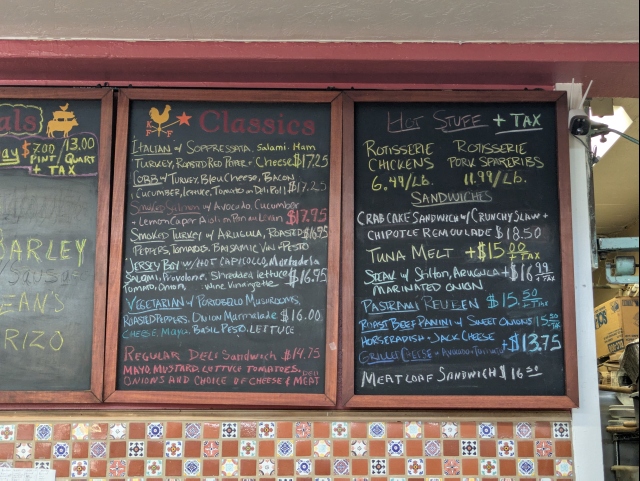 als
ay $7.00/13.00
PINT/QUART
+ TAX
BARLEY
Sausa
EAN'S
RIZO
Classics
ITALIAN w/ SOPPRESSATA, Salami, Ham
TURKEY, ROASTED RED PEPPER + CHEESE $17.25
COBB w/ TURKEY, BLEU CHEESE, BACON
CUCUMBER, lettuce, Tomato on Deli Roll $17.25
Smoked Salmon w/ Avocado, Cucumber
+ Lemon Caper Aioli on Pan au Levain $17.95
Smoked TURKEY w/ ARUGULA, ROASTED $16.95
PEPPERS, TOMATOES, BALSAMIC VIN + PESTO
JERSEY BOY w/ HOT CAPICOLLO, Mortadela
SALAMI, Provolone, Shredded lettuce $16.95
Tomato, Onion, wine vinaigrette
VEGETARIAN w/ PORTOBELLO MUSHROOMS,
ROASTED PEPPERS, Onion Marmalade $16.00
CHEESE, Mayo, BASIL PESTO, LETTUCE
REGULAR DELI Sandwich $14.75
MAYO, MUSTARD, LETTUCE TOMATOES,
ONIONS AND CHOICE OF CHEESE & DELI MEAT
HOT STUFF + TAX
ROTISSERIE CHICKENS 6.49/LB.
ROTISSERIE PORK SPARERIBS 11.99/LB.
SANDWICHES
CRAB CAKE SANDWICH w/ CRUNCHY SLAW +
CHIPOTLE REMOULADE $18.50
TUNA MELT +$15.00 + TAX
STEAK w/ Stilton, ARUGULA + $16.99 + TAX
MARINATED ONION
PASTRAMI REUBEN $15.50 + TAX
ROAST BEEF PANINI w/ SWEET ONIONS 15.50 + TAX
HORSERADISH + JACK CHEESE
GRILLED CHEESE + Avocado + Tomato +$13.75
MEATLOAF SANDWICH $16.50